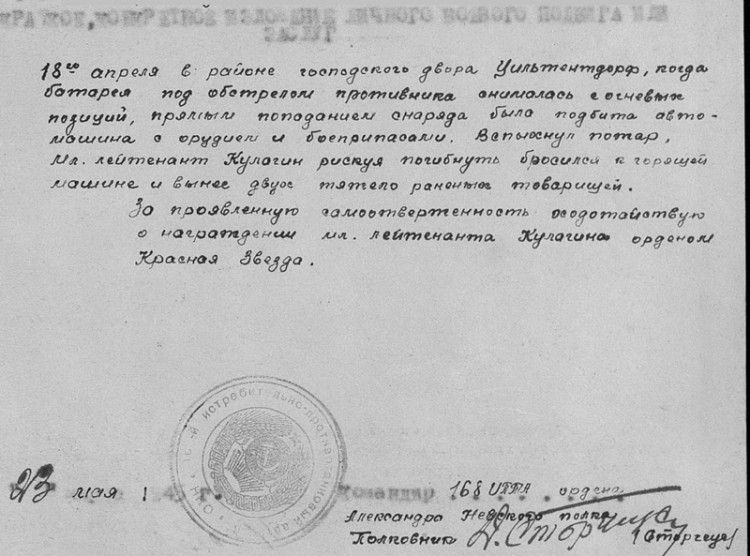 КРАТКОЕ, КОНКРЕТНОЕ ИЗЛОЖЕНИЕ ЛИЧНОГО БОЕВОГО ПОДВИГА ИЛИ
ЗАСЛУГ
18го апреля в районе господского двора Уильтентдорф, когда
батарея под обстрелом противника снималась с огневых
позиций, прямым попаданием снаряда была подбита авто-
машина с орудием и боеприпасами. Вспыхнул пожар,
мл. лейтенант Кулагин рискуя погибнуть бросился к горящей
машине и вынес двух тяжело раненых товарищей.
За проявленную самоотверженность ходотайствую
о награждении мл. лейтенанта Кулагина орденом
Красная Звезда.
истребительно-противотанковый
23 мая г. Командир 168 ИПТА ордена
Александра Невского полка
Полковник